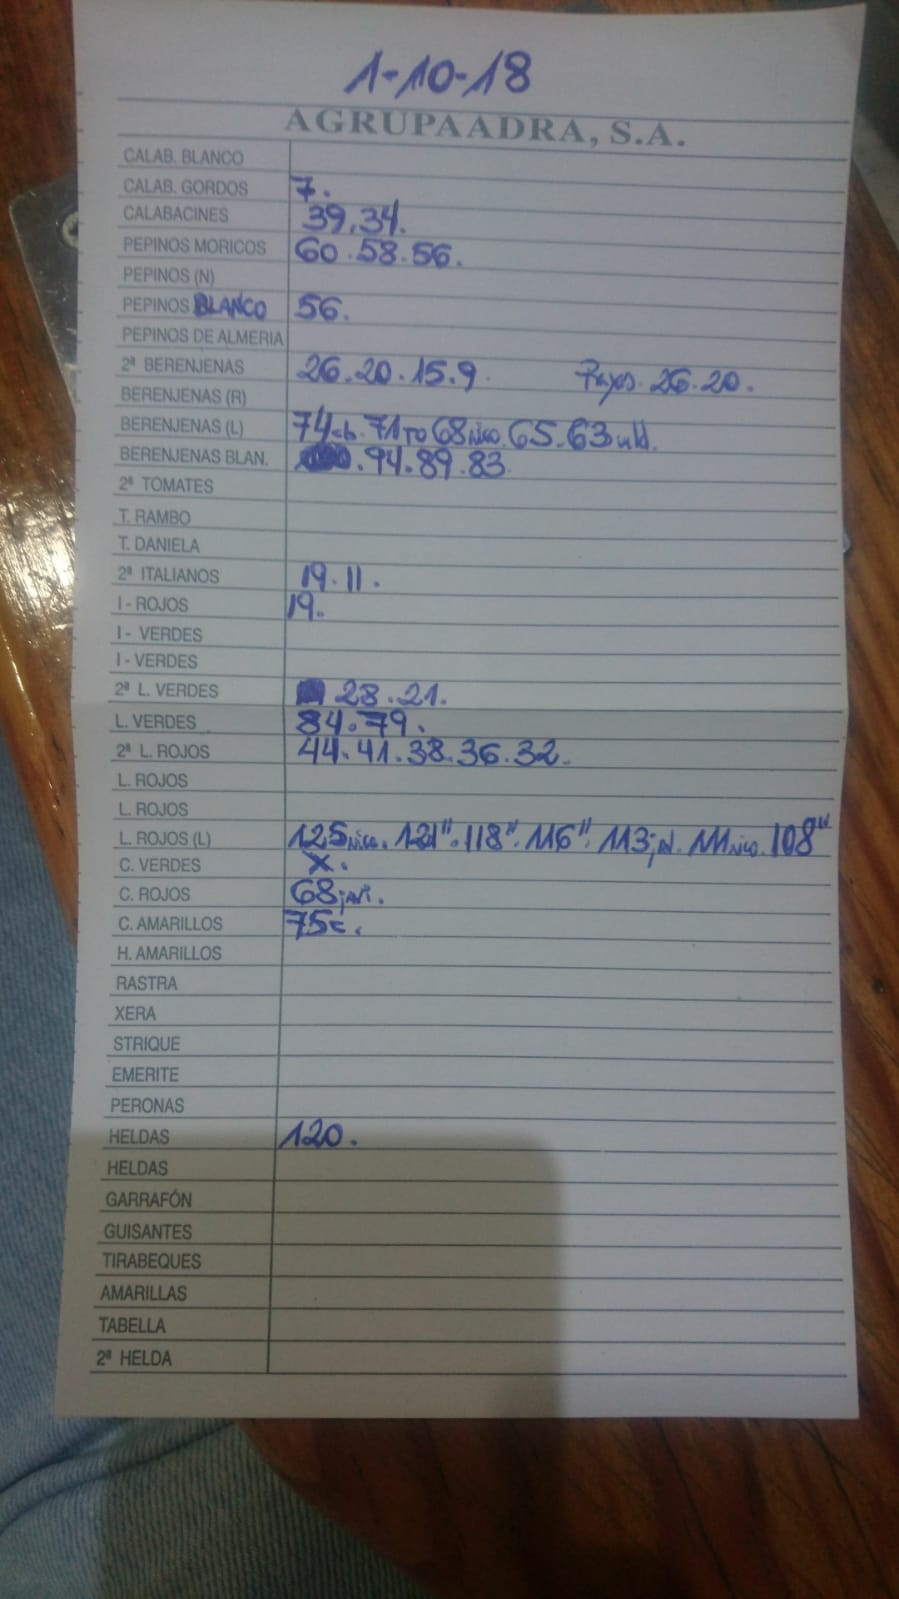 1-10-18
AGRUPAADRA, S.A.
CALAB. BLANCO
CALAB. GORDOS 7.
CALABACINES 39.34.
PEPINOS MORICOS 60.58.56.
PEPINOS (N)
PEPINOS BLANCO 56.
PEPINOS DE ALMERIA
2ª BERENJENAS 26.20.15.9. 26.20.
BERENJENAS (R)
BERENJENAS (L) 74 71 68 nico. 65.63
BERENJENAS BLAN. .94.89.83.
2ª TOMATES
T. RAMBO
T. DANIELA
2ª ITALIANOS 19.11.
I - ROJOS 19.
I - VERDES
I - VERDES
2ª L. VERDES 28.21.
L. VERDES 84.79.
2ª L. ROJOS 44.41.38.36.32.
L. ROJOS
L. ROJOS
L. ROJOS (L) 125 nico. 121". 118". 116". 113 111 nico. 108"
C. VERDES X.
C. ROJOS 68 javi.
C. AMARILLOS 75c.
H. AMARILLOS
RASTRA
XERA
STRIQUE
EMERITE
PERONAS
HELDAS 120.
HELDAS
GARRAFÓN
GUISANTES
TIRABEQUES
AMARILLAS
TABELLA
2ª HELDA